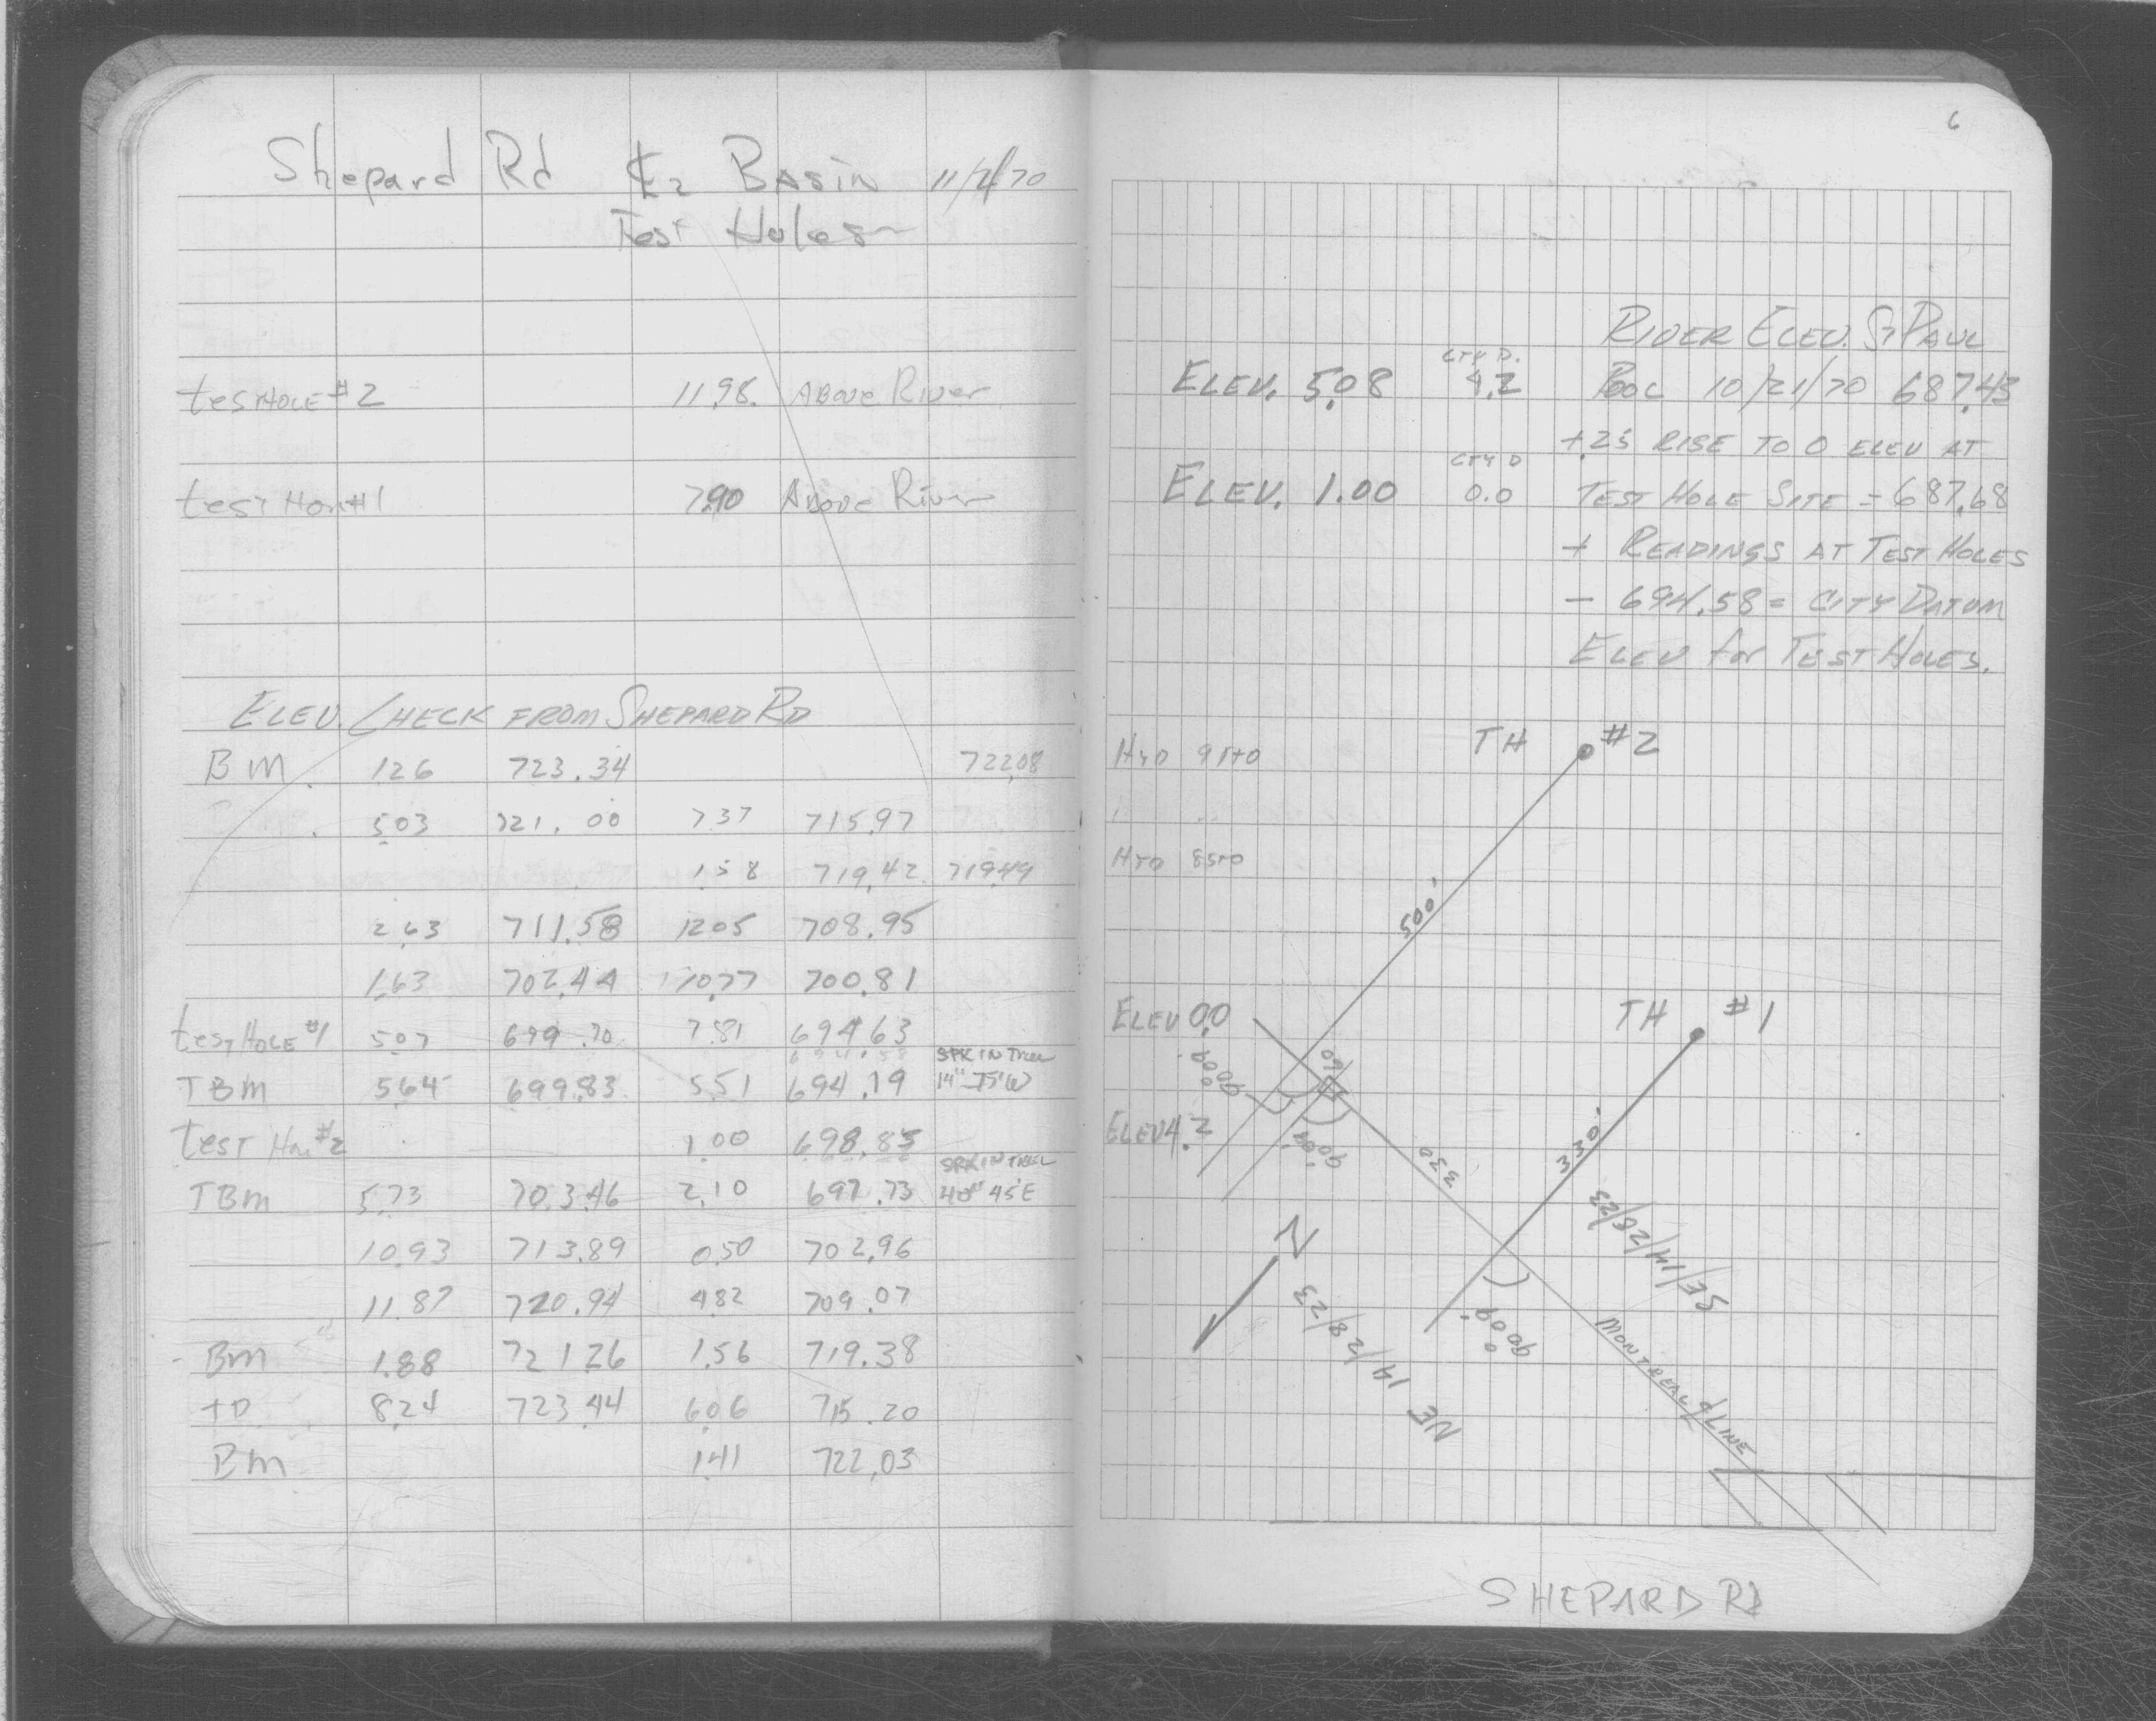 Shepard Rd ₵2 BASIN 11/2/70
Test Holes
test HOLE #2 11.98. ABOVE River
test HOLE #1 7.90 Above River
ELEV. CHECK FROM SHEPARD RD
BM 1.26 723.34 722.08
5.03 721.00 7.37 715.97
1.58 719.42 719.49
2.63 711.58 12.05 708.95
1.63 702.44 10.77 700.81
test HOLE #1 5.07 699.70 7.81 694.63
694.58 SPK IN TREE
TBM 5.64 699.83 5.51 694.19 14" 75' W
test HOLE #2 1.00 698.83
SPK IN TREE
TBM 5.73 703.46 2.10 697.73 40" 45' E
10.93 713.89 0.50 702.96
11.87 720.94 4.82 709.07
BM 1.88 721.26 1.56 719.38
TP 8.24 723.44 6.06 715.20
BM 1.41 722.03
6
RIVER ELEV. ST PAUL
CTY D.
ELEV. 5.08 4.2 POOL 10/21/70 687.43
+.25 RISE TO 0 ELEV AT
CTY D
ELEV. 1.00 0.0 TEST HOLE SITE = 687.68
+ READINGS AT TEST HOLES
- 694.58 = CITY DATUM
ELEV for TEST HOLES.
TH #2
500'
TH #1
ELEV 0.0
90°00'
60
ELEV 4.2
90°00'
330
330'
SE 1/4 /28/23
N
NE 1/4 /28/23
90°00'
MONTREAL ₵ LINE
SHEPARD Rd